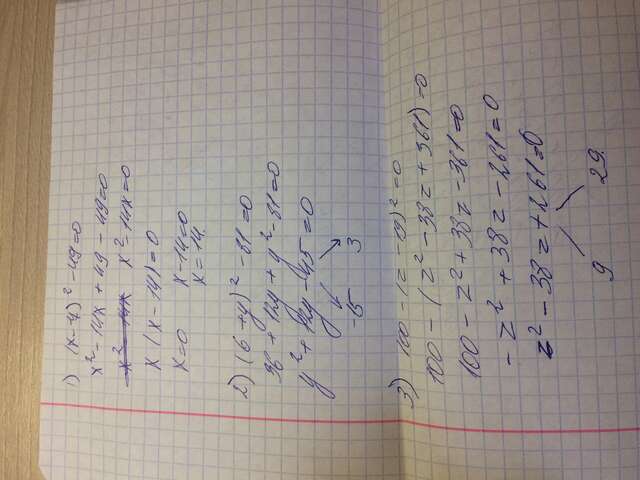 1) (x-7)² -49=0
x² -14x + 49 -49=0
x² -14x x² -14x=0
x (x-14)=0
x=0 x-14=0
x=14.
2) (6 +y)² -81=0
36 + 12y + y² -81=0
y² + 12y -45=0
-15 3
3) 100 -(z -19)² =0
100 - (z² -38z + 361)=0
100 - z² +38z -361=0
-z² +38z -261=0
z² -38z +261=0
9 29.